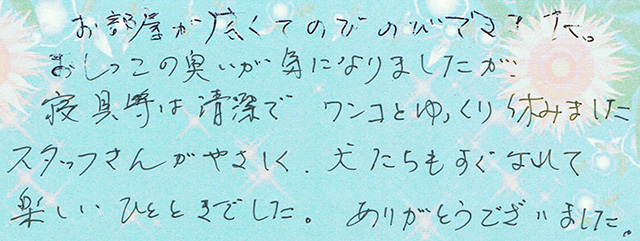 お部屋が広くてのびのびできました。
おしっこの臭いが気になりましたが、
寝具等は清潔で ワンコとゆっくり休みました
スタッフさんがやさしく、犬たちもすぐなれて
楽しいひとときでした。ありがとうございました。